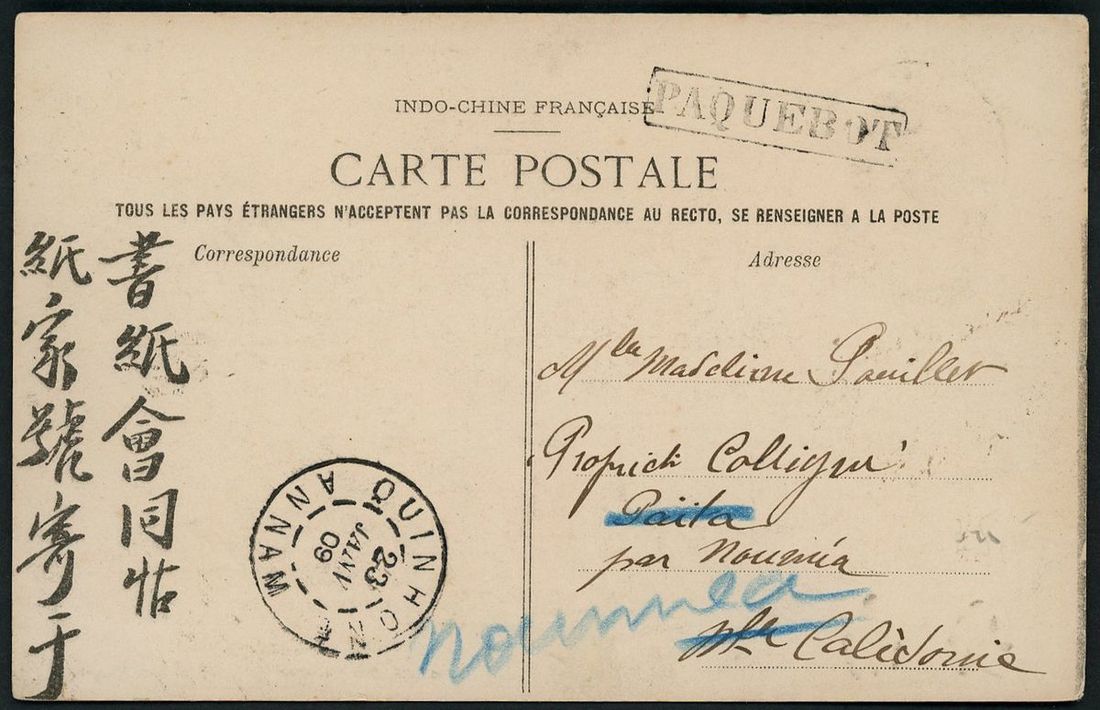 INDO-CHINE FRANÇAISE
PAQUEBOT
CARTE POSTALE
TOUS LES PAYS ÉTRANGERS N'ACCEPTENT PAS LA CORRESPONDANCE AU RECTO, SE RENSEIGNER A LA POSTE
Correspondance
書紙會同帖
紙家號寄于
QUINHONE
23
JANV
09
ANNAM
Adresse
Mlle Madeleine Pouillet
Propriété
Païta
par Nouméa
Nlle Calédonie
Nouméa